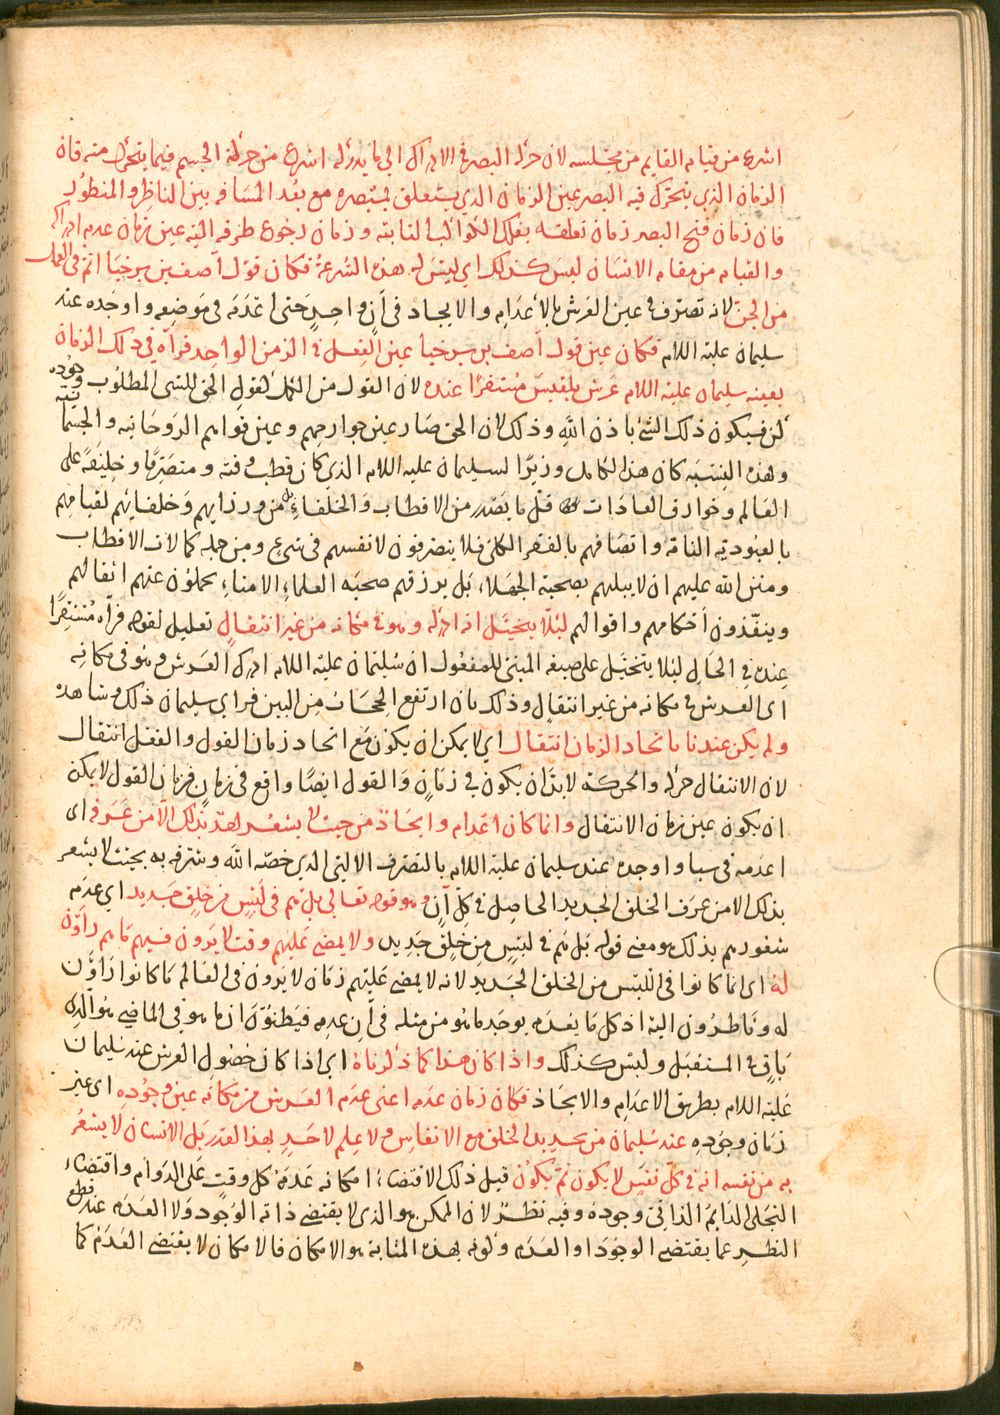 اسرع من قيام القايم من مجلسه لان حركة البصر في الادراك الى ما يدركه اسرع من حركة الجسم فيما يتحرك منه فان
الزمان الذي يتحرك فيه البصر عين الزمان الذي يتعلق بمبصره مع بعد المسافه بين الناظر والمنظور
فان زمان فتح البصر زمان تعلقه بفلك الكواكب الثابته وزمان رجوع طرفه اليه عين زمان عدم ادراكه
والقيام من مقام الانسان ليس كذلك اي ليس له هذه السرعة فكان قول آصف بن برخيا اتم في العمل
من الجن لانه تصرف في عين العرش بالأعدام والايجاد في آن واحد حتى اعدمه في موضعه واوجده عند
سليمان عليه اللام فكان عين قول آصف بن برخيا عين الفعل في الزمن الواحد فرآه في ذلك الزمان
بعينه سليمان عليه اللام عرش بلقيس مستقرا عنده لان القول من الكمل كقول الحق للشى المطلوب وجوده
كن فيكون ذلك الشئ باذن الله وذلك لان الحق صار عين جوارحهم وعين قواهم الروحانيه والجسمانيه
وهذه النسبه كان هذا الكامل وزيرا لسليمان عليه اللام الذي كان قطب وقته ومتصرفا وخليفة على
العالم وخوارق العادات قل ما يصدر من الاقطاب والخلفاء بل من وزرايهم وخلفايهم لقيامهم
بالعبودية التامه واتصافهم بالفقر الكلى فلا يتصرفون لانفسهم في شيء ومن جملة كمالات الاقطاب
ومنن الله عليهم ان لا يبليهم بصحبة الجهلاء بل يرزقهم صحبة العلماء الامناء يحملون عنهم اثقالهم
وينفذون أحكامهم واقوالهم لئلا يتخيل انه ادركه وهو في مكانه من غير انتقال تعليل لقوله فرآه مستقرا
عنده في الحال لئلا يتخيل على صيغه المبنى للمفعول ان سليمان عليه اللام ادرك العرش وهو في مكانه
اى العرش في مكانه من غير انتقال وذلك بان ارتفع الحجاب من البين فراى سليمان ذلك وشاهده
ولم يكن عندنا باتحاد الزمان انتقال اي لا يمكن ان يكون مع اتحاد زمان القول والفعل انتقال
لان الانتقال حركة والحركة لابد ان يكون في زمان والقول ايضا واقع في زمان فزمان القول لا يمكن
ان يكون عين زمان الانتقال وانما كان اعدام وايجاد من حيث لا يشعر احد بذلك الا من عرفه اى
اعدمه في سبا واوجده عند سليمان عليه اللام بالتصرف الالهي الذي خصه الله وشرفه به بحيث لا يشعر
بذلك الا من عرف الخلق الجديد الحاصل في كل آن وهو قوله تعالى بل هم في لبس من خلق جديد اي عدم
شعورهم بذلك هو معنى قوله بل هم في لبس من خلق جديد ولا يمضي عليهم وقت لا يرون فيهم ما هم راؤن
له اى انما كانوا في اللبس من الخلق الجديد لانه لا يمضي عليهم زمان لا يرون في العالم ما كانوا راؤن
له وناظرون اليه اذ كل ما يعدم يوجد ما هو من مثله في آن عدمه فيظنون ان ما هو في الماضي هو الذي
باق في المستقبل وليس كذلك واذا كان هذا كما ذكرناه اى اذا كان حصول العرش عند سليمان
عليه اللام بطريق الاعدام والايجاد فكان زمان عدمه اعنى عدم العرش من مكانه عين وجوده اى عين
زمان وجوده عند سليمان من تجديد الخلق مع الانفاس ولا علم لاحد بهذا القدر بل الانسان لا يشعر
به من نفسه انه في كل نفس لا يكون ثم يكون قيل ذلك الاقتضاء امكانه عدمه كل وقت على الدوام واقتضاء
التجلى الدايم الذاتي وجوده وفيه نظر لان الممكن هو الذى لا يقتضي ذاته الوجود ولا العدم عند قطع
النظر عما يقتضي الوجود او العدم وكونه بهذه المثابة هو الامكان فالامكان لا يقتضي العدم كما